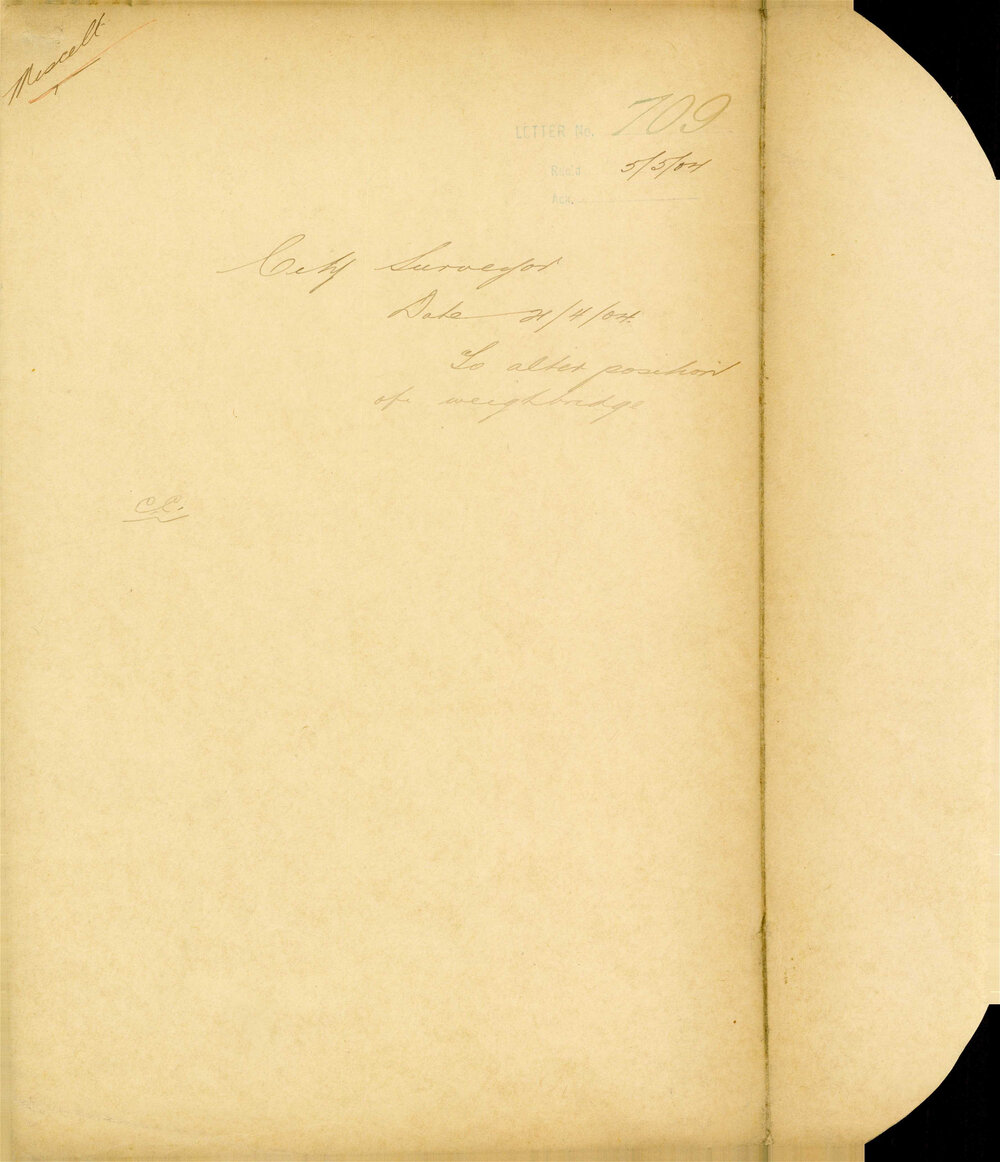 Miscell
LETTER No. 709
Rec'd 5/5/04
Ack.
City Surveyor
Date 21/4/04.
To alter position
of weighbridge
C.C.